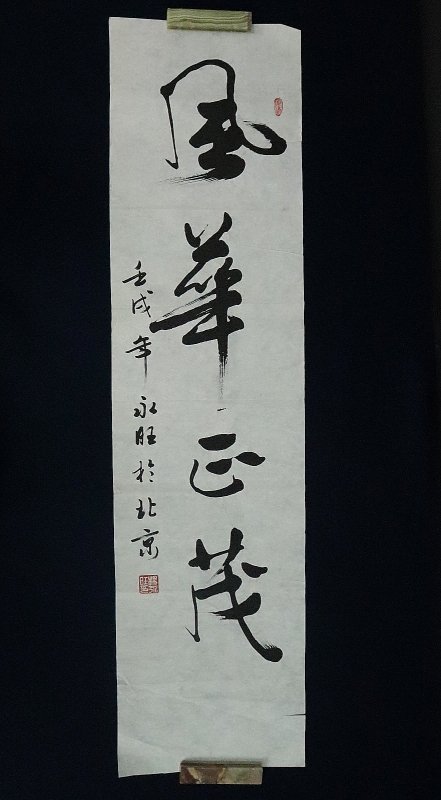 風華正茂
壬戌年 永旺於北京